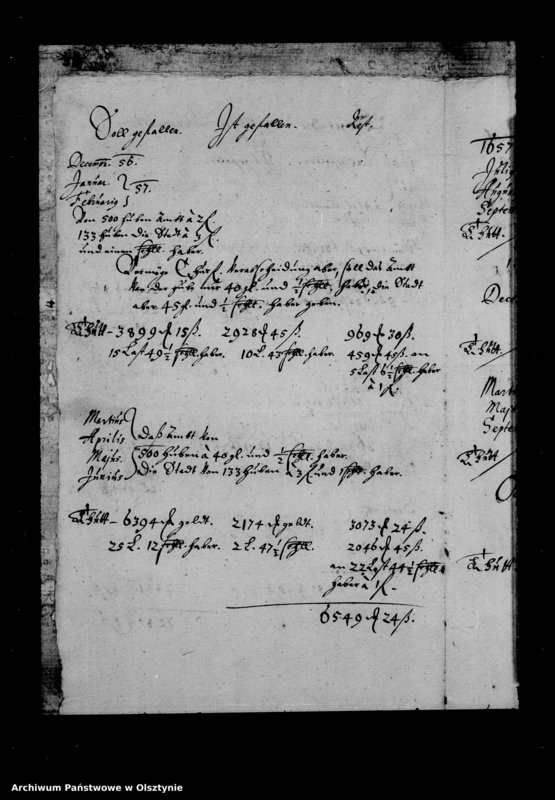 Soll gefallen. Ist gefallen. Rest.
Decembr. 56.
Januar. } 57.
Februarij }
Von 500 huben Ambt à 2
133 huben die Stadt à 3
und einen schfl. haber.
Vermöge Churf. Verabscheidung aber, soll das Ambt
von der hube nur 40 gl. und ½ schfl. haber, die Stadt
aber 45 gl. und ½ schfl. haber geben.
thutt – 3899 15 ß. 2928 45 ß. 969 30 ß.
15 Last 49½ schfl. haber. 10 L. 43 schfl. haber. 459 45 ß. an
5 Last 6½ schfl. haber
à 1
Martius
Aprilis } Daß Ambt von
Majus. } 500 huben à 40 gl. und ½ schfl. haber.
Junius } die Stadt von 133 huben à 3 und 1 schfl. haber.
thutt – 6394 geldt. 2174 geldt. 3073 24 ß.
25 L. 12 schfl. haber. 2 L. 47½ schfl. 2046 45 ß.
an 22 Last 44½ schfl.
haber à 1
6549 24 ß.
1657
Julij
Septem
thutt
Dec
thutt
Mart
Maj
Septem
thutt
thutt
Archiwum Państwowe w Olsztynie